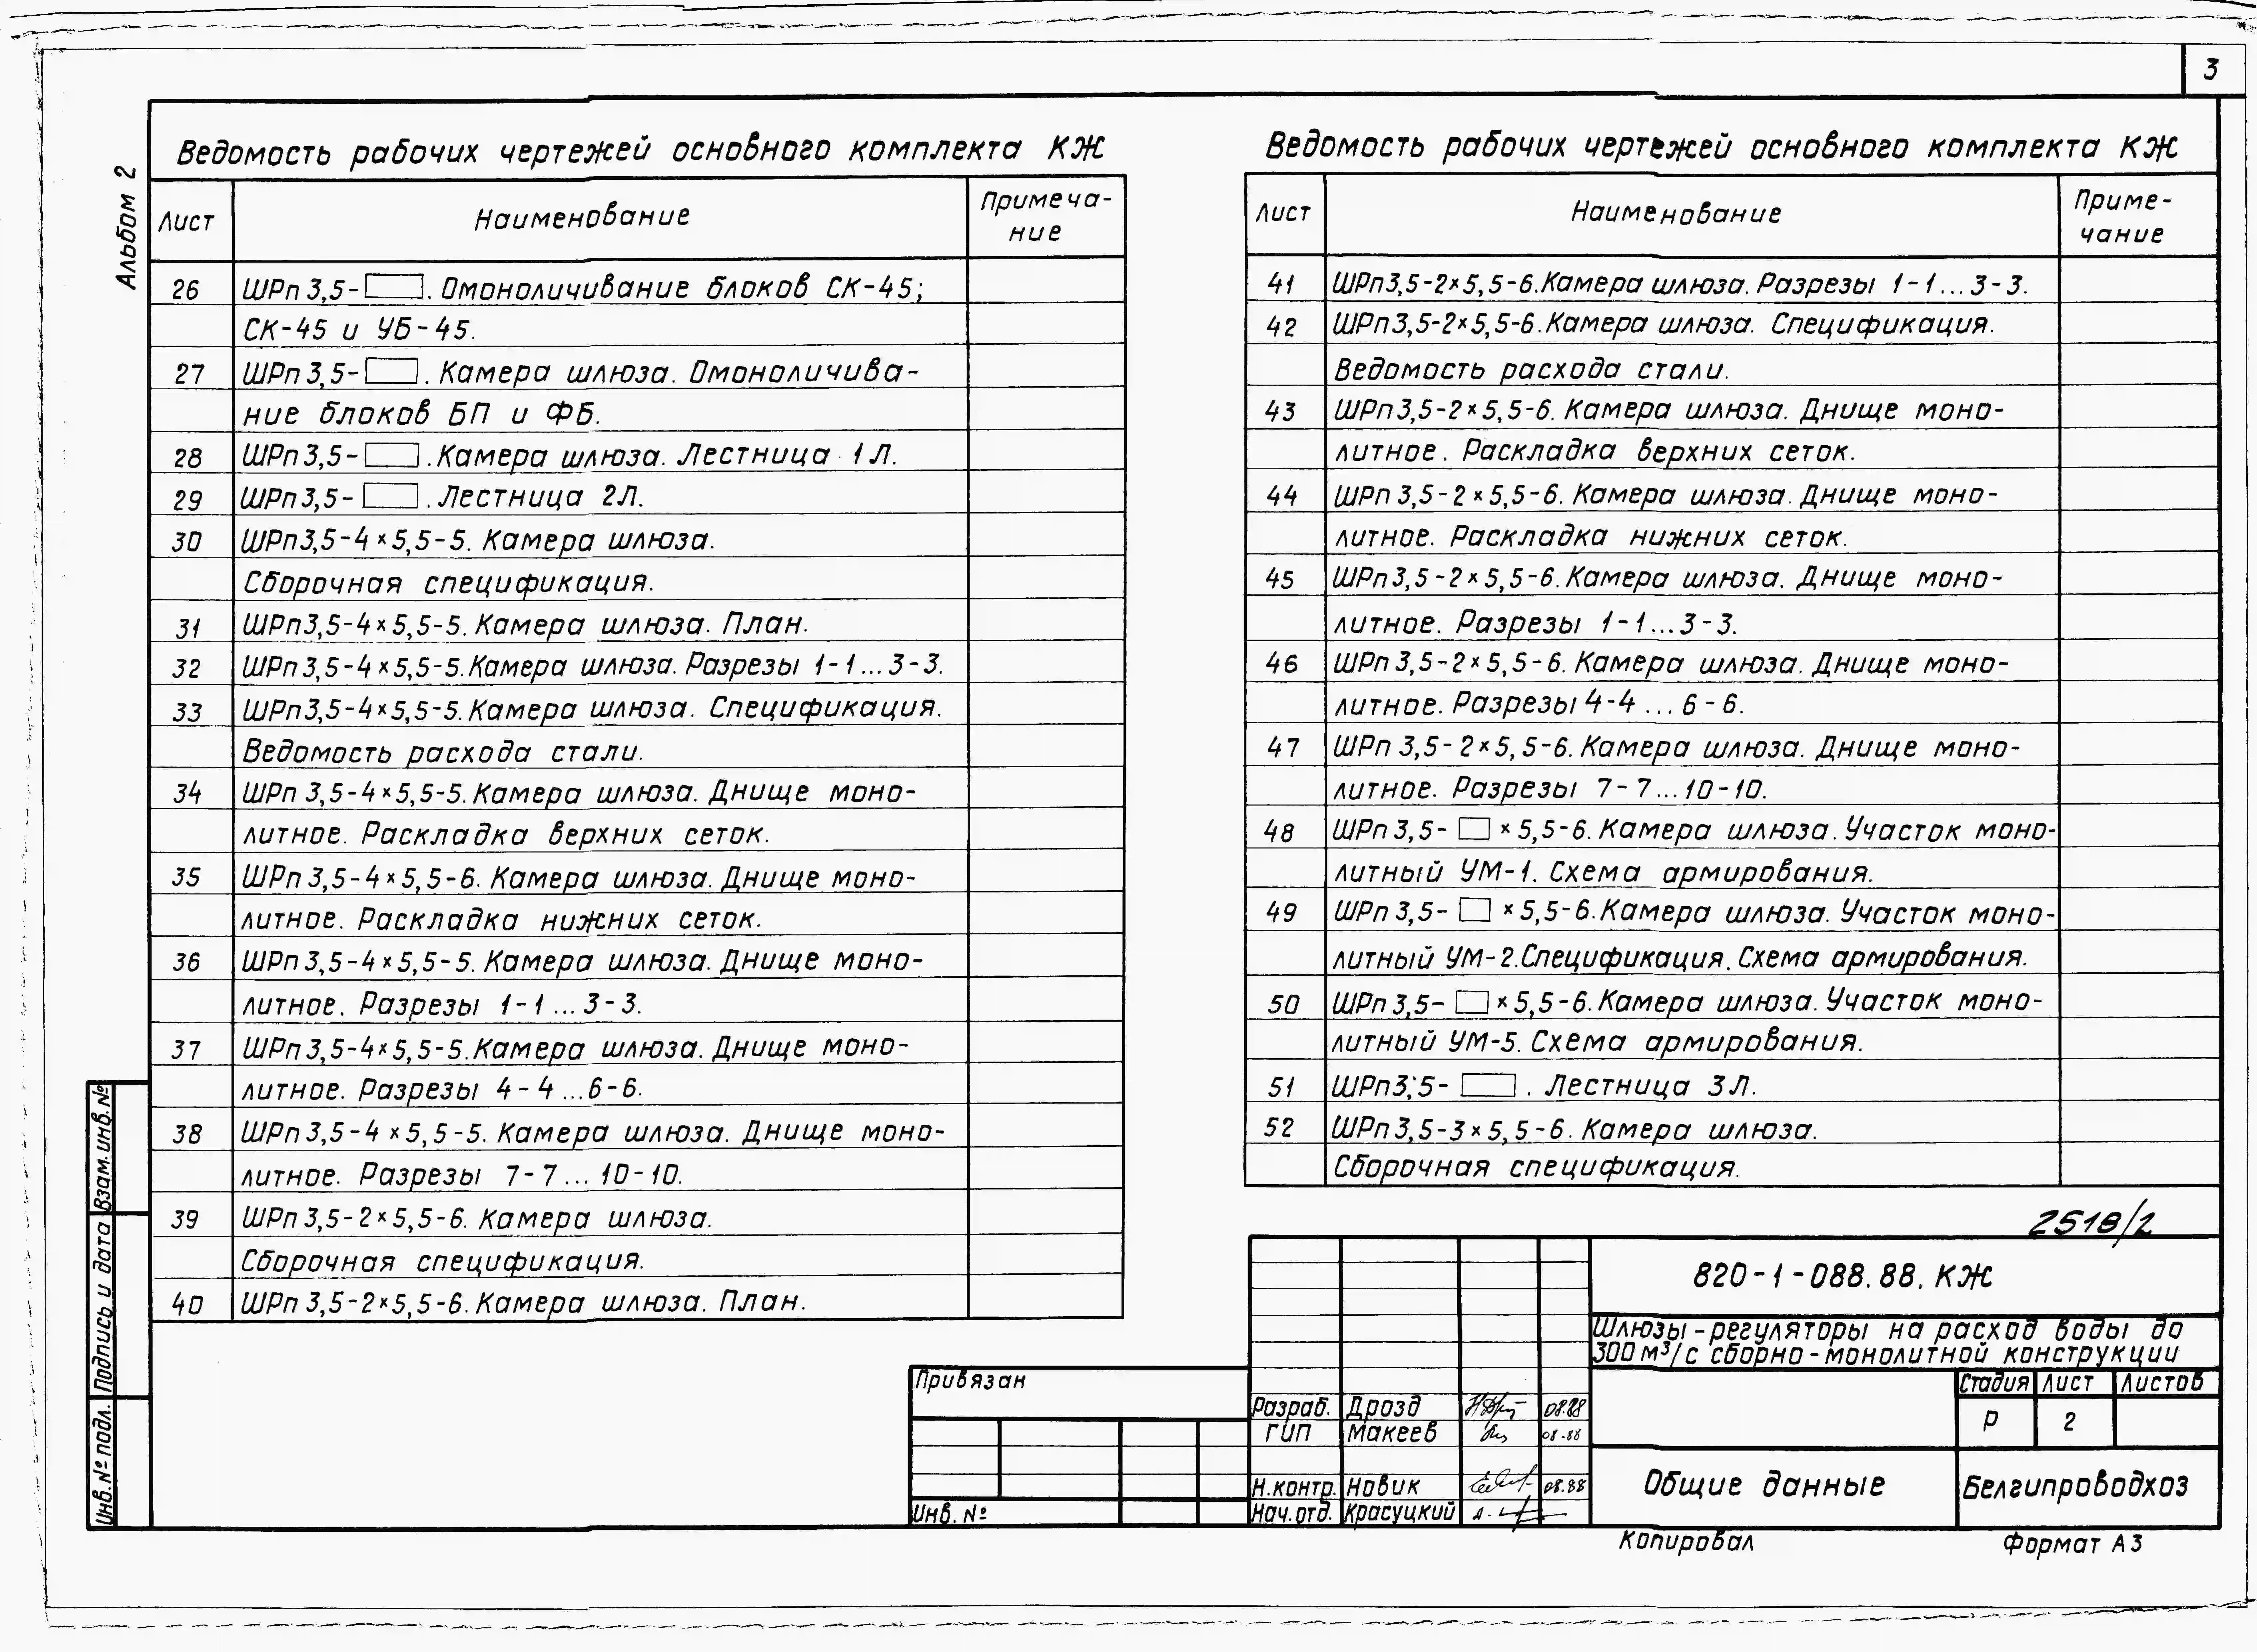 3
Альбом 2
Ведомость рабочих чертежей основного комплекта КЖ
Лист Наименование Примеча-
ние
26 ШРп 3,5- . Омоноличивание блоков СК-45;
СК-45 и УБ-45.
27 ШРп 3,5- . Камера шлюза. Омоноличива-
ние блоков БП и ФБ.
28 ШРп 3,5- . Камера шлюза. Лестница 1Л.
29 ШРп 3,5- . Лестница 2Л.
30 ШРп 3,5-4×5,5-5. Камера шлюза.
Сборочная спецификация.
31 ШРп 3,5-4×5,5-5. Камера шлюза. План.
32 ШРп 3,5-4×5,5-5. Камера шлюза. Разрезы 1-1...3-3.
33 ШРп 3,5-4×5,5-5. Камера шлюза. Спецификация.
Ведомость расхода стали.
34 ШРп 3,5-4×5,5-5. Камера шлюза. Днище моно-
литное. Раскладка верхних сеток.
35 ШРп 3,5-4×5,5-6. Камера шлюза. Днище моно-
литное. Раскладка нижних сеток.
36 ШРп 3,5-4×5,5-5. Камера шлюза. Днище моно-
литное. Разрезы 1-1...3-3.
37 ШРп 3,5-4×5,5-5. Камера шлюза. Днище моно-
литное. Разрезы 4-4...6-6.
38 ШРп 3,5-4×5,5-5. Камера шлюза. Днище моно-
литное. Разрезы 7-7...10-10.
39 ШРп 3,5-2×5,5-6. Камера шлюза.
Сборочная спецификация.
40 ШРп 3,5-2×5,5-6. Камера шлюза. План.
Ведомость рабочих чертежей основного комплекта КЖ
Лист Наименование Приме-
чание
41 ШРп 3,5-2×5,5-6. Камера шлюза. Разрезы 1-1...3-3.
42 ШРп 3,5-2×5,5-6. Камера шлюза. Спецификация.
Ведомость расхода стали.
43 ШРп 3,5-2×5,5-6. Камера шлюза. Днище моно-
литное. Раскладка верхних сеток.
44 ШРп 3,5-2×5,5-6. Камера шлюза. Днище моно-
литное. Раскладка нижних сеток.
45 ШРп 3,5-2×5,5-6. Камера шлюза. Днище моно-
литное. Разрезы 1-1...3-3.
46 ШРп 3,5-2×5,5-6. Камера шлюза. Днище моно-
литное. Разрезы 4-4...6-6.
47 ШРп 3,5-2×5,5-6. Камера шлюза. Днище моно-
литное. Разрезы 7-7...10-10.
48 ШРп 3,5- ×5,5-6. Камера шлюза. Участок моно-
литный УМ-1. Схема армирования.
49 ШРп 3,5- ×5,5-6. Камера шлюза. Участок моно-
литный УМ-2. Спецификация. Схема армирования.
50 ШРп 3,5- ×5,5-6. Камера шлюза. Участок моно-
литный УМ-5. Схема армирования.
51 ШРп 3,5- . Лестница 3Л.
52 ШРп 3,5-3×5,5-6. Камера шлюза.
Сборочная спецификация.
2518/2
820-1-088.88. КЖ
Шлюзы-регуляторы на расход воды до
300 м³/с сборно-монолитной конструкции
Стадия Лист Листов
Р 2
Общие данные
Белгипроводхоз
Разраб. Дрозд 08.88
ГИП Макеев 08.88
Н.контр. Новик 08.88
Нач.отд. Красуцкий
Привязан
Инв. №
Взам. инв. №
Подпись и дата
Инв. № подл.
Копировал Формат А3